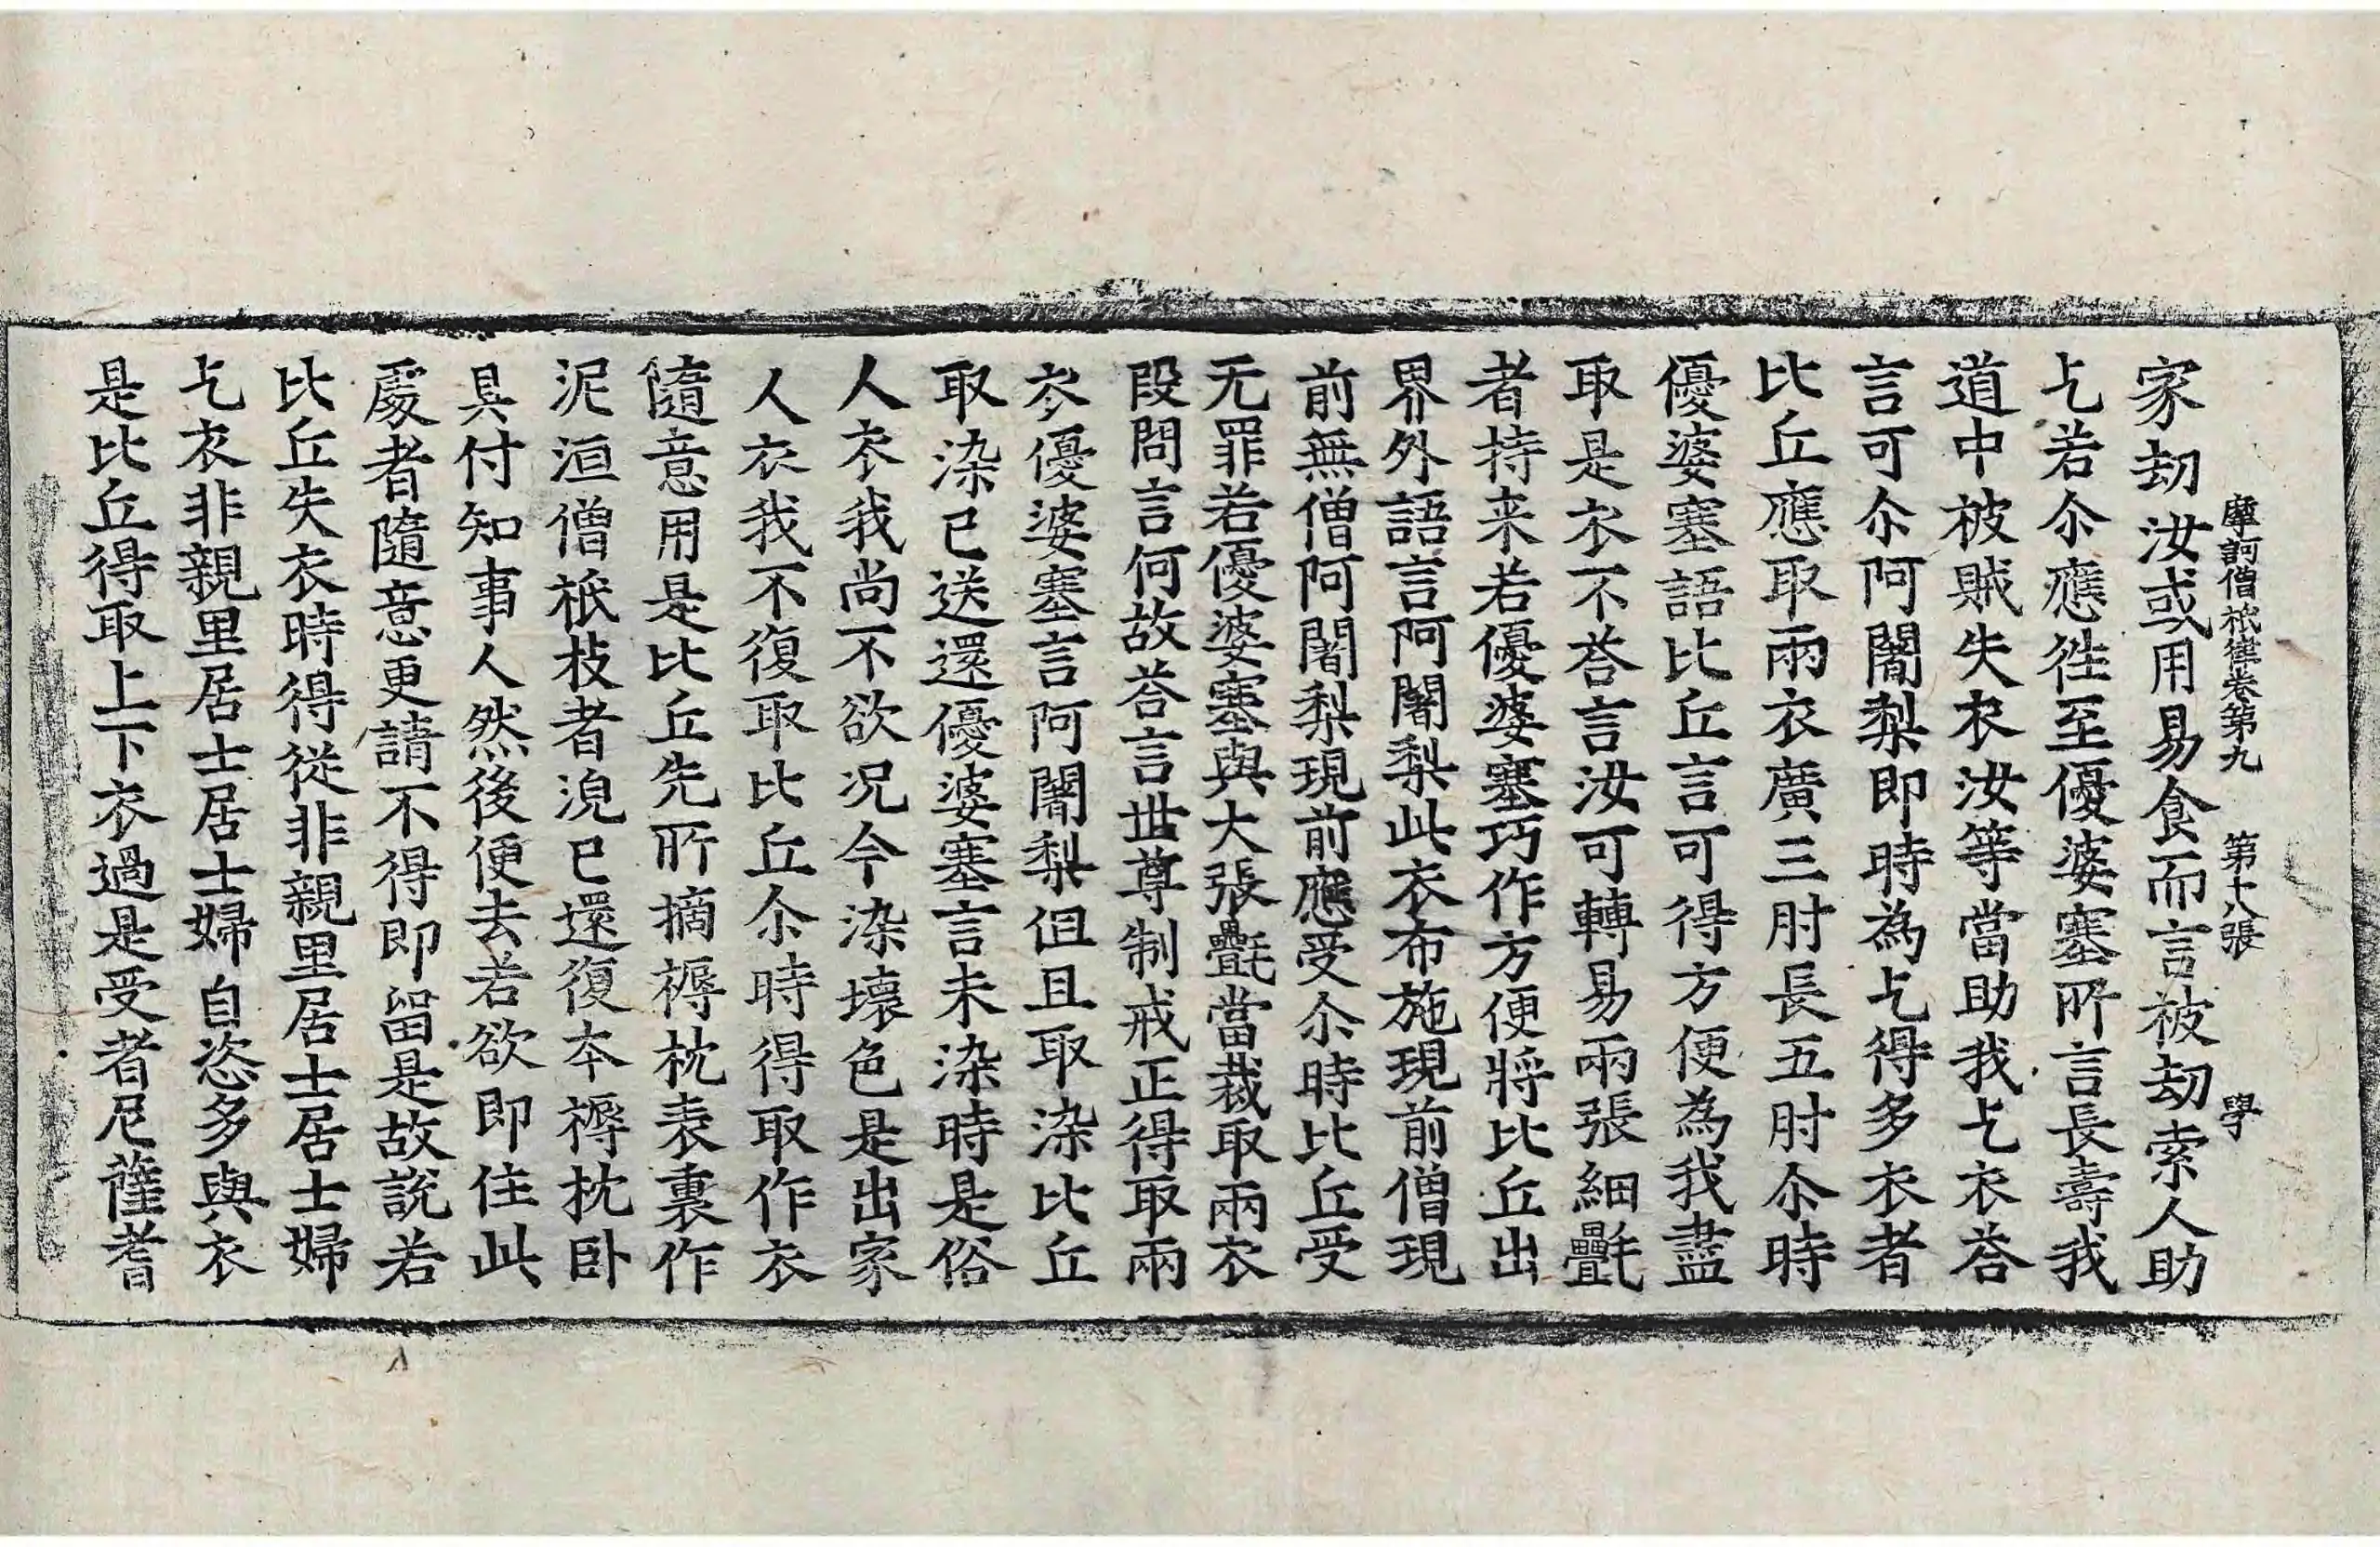 摩訶僧祇律卷第九 第十八張 學
家劫汝或用易食而言被劫索人助
乞若尒應徃至優婆塞所言長壽我
道中被賊失衣汝等當助我乞衣荅
言可尒阿闍梨即時為乞得多衣者
比丘應取兩衣廣三肘長五肘尒時
優婆塞語比丘言可得方便為我盡
取是衣不荅言汝可轉易兩張細㲲
者持来若優婆塞巧作方便將比丘出
界外語言阿闍梨此衣布施現前僧現
前無僧阿闍梨現前應受尒時比丘受
无罪若優婆塞與大張㲲當裁取兩衣
段問言何故荅言世尊制戒正得取兩
衣優婆塞言阿闍梨但且取染比丘
取染已送還優婆塞言未染時是俗
人衣我尚不欲况今染壞色是出家
人衣我不復取比丘尒時得取作衣
隨意用是比丘先所摘褥枕表裏作
泥洹僧祇枝者浣已還復本褥枕卧
具付知事人然後便去若欲即住此
處者隨意更請不得即留是故說若
比丘失衣時得從非親里居士居士婦
乞衣非親里居士居士婦自恣多與衣
是比丘得取上下衣過是受者尼薩耆